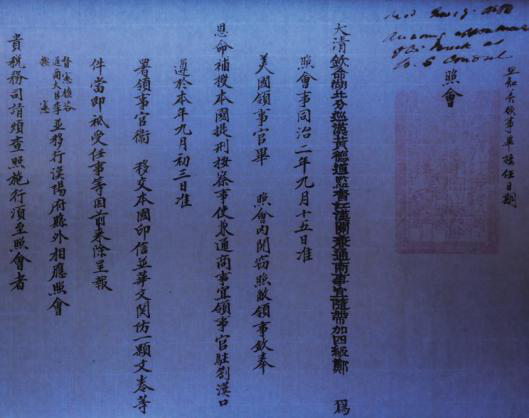 Announcing appointment
of Mr. Breck as
U.S. Consul
照會
大清欽命湖北分巡漢黃德道監督江漢關兼通商事宜隨帶加四級鄭 爲
照會事同治二年九月十五日准
美國領事官畢 照會內開竊照敝領事欽奉
恩命補授本國提刑按察事使兼通商事宜領事官駐劄漢口
遵於本年九月初三日准
署領事官衞 移交本國印信並華文關防一顆文卷等
件當即祇受任事等因前來除呈報
並移行漢陽府縣外相應照會
貴稅務司請煩查照施行須至照會者